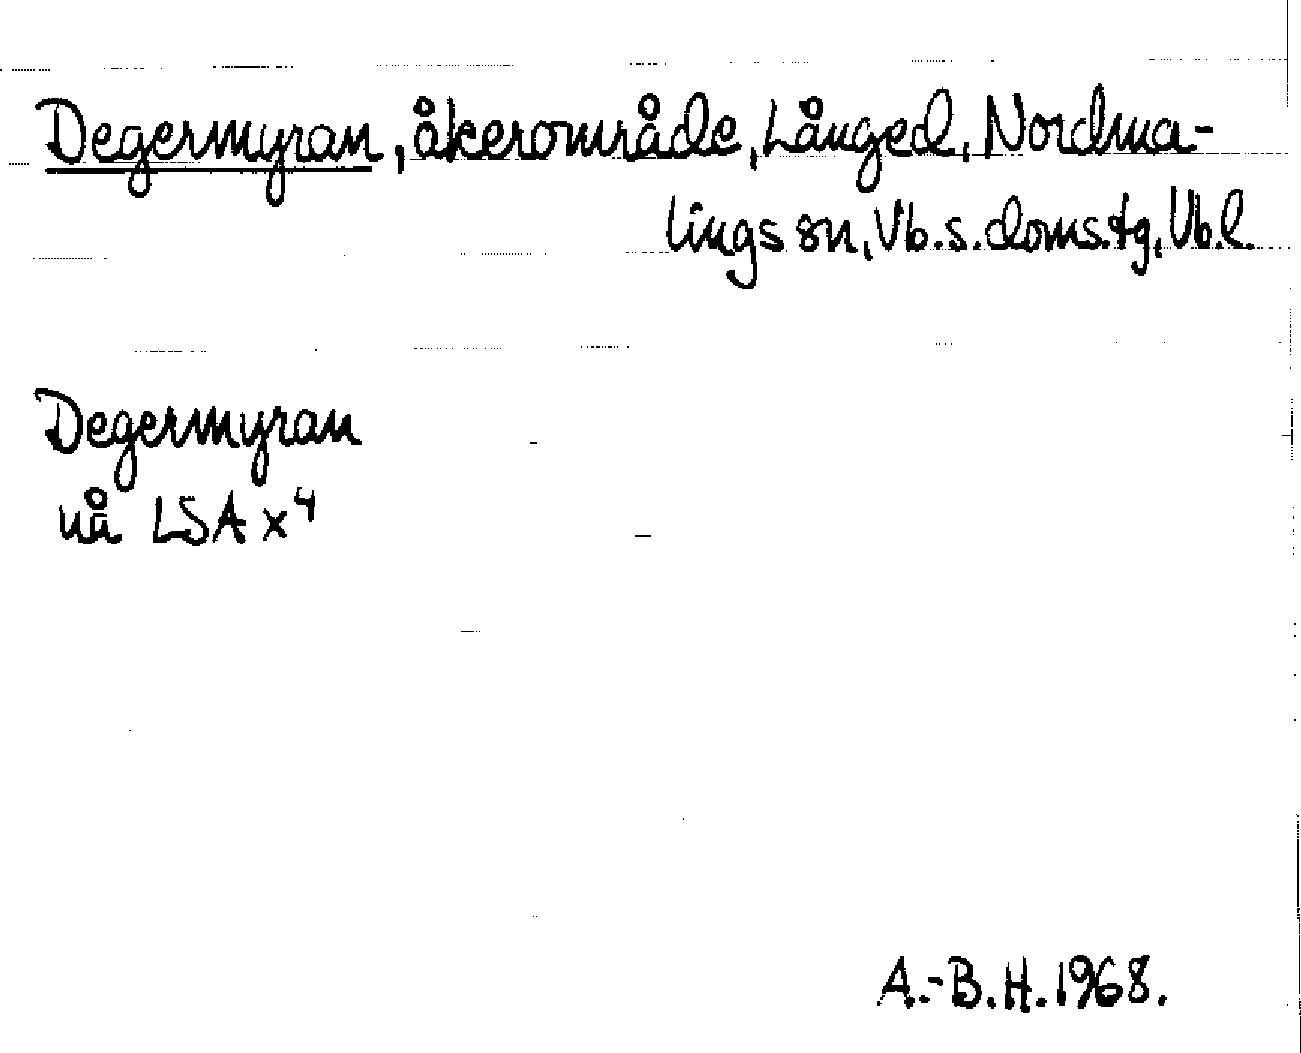 Degermyran, åkerområde, Långed, Nordma-
lings sn, Vb.s.doms.tg, Vb.l.
Degermyran
nå LSA x⁴
A.-B.H. 1968.